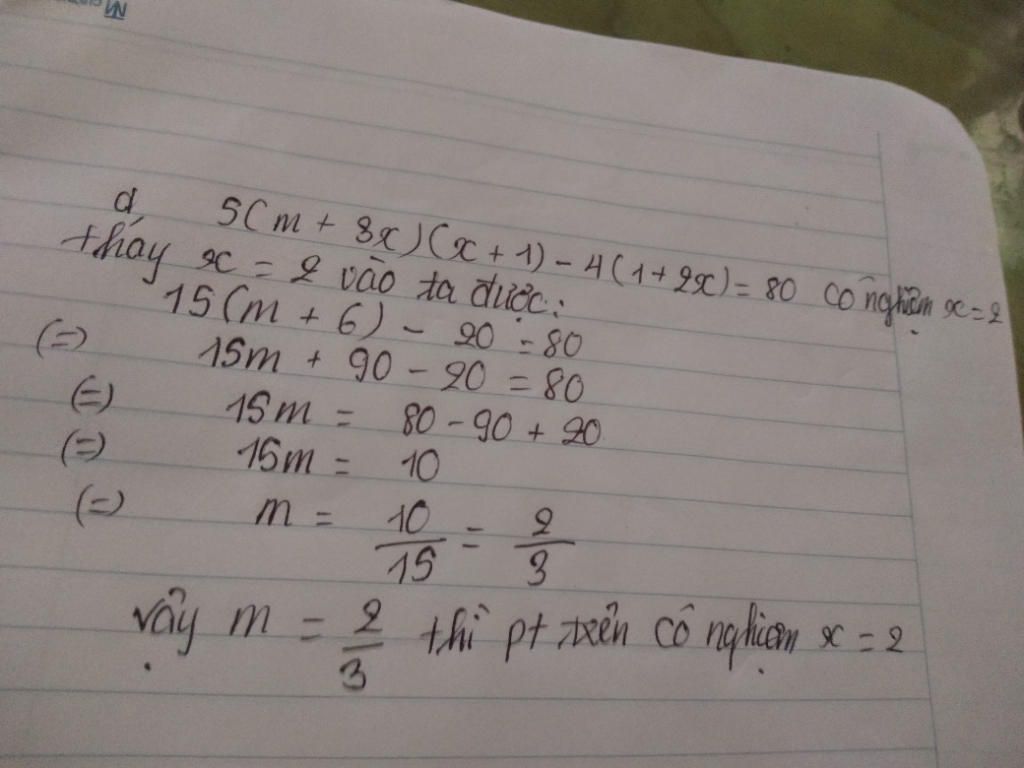 d, 5(m + 3x)(x + 1) - 4(1 + 2x) = 80 có nghiệm x = 2
thay x = 2 vào ta được:
15(m + 6) - 20 = 80
(=) 15m + 90 - 20 = 80
(=) 15m = 80 - 90 + 20
(=) 15m = 10
(=) m = 10/15 = 2/3
vậy m = 2/3 thì pt trên có nghiệm x = 2